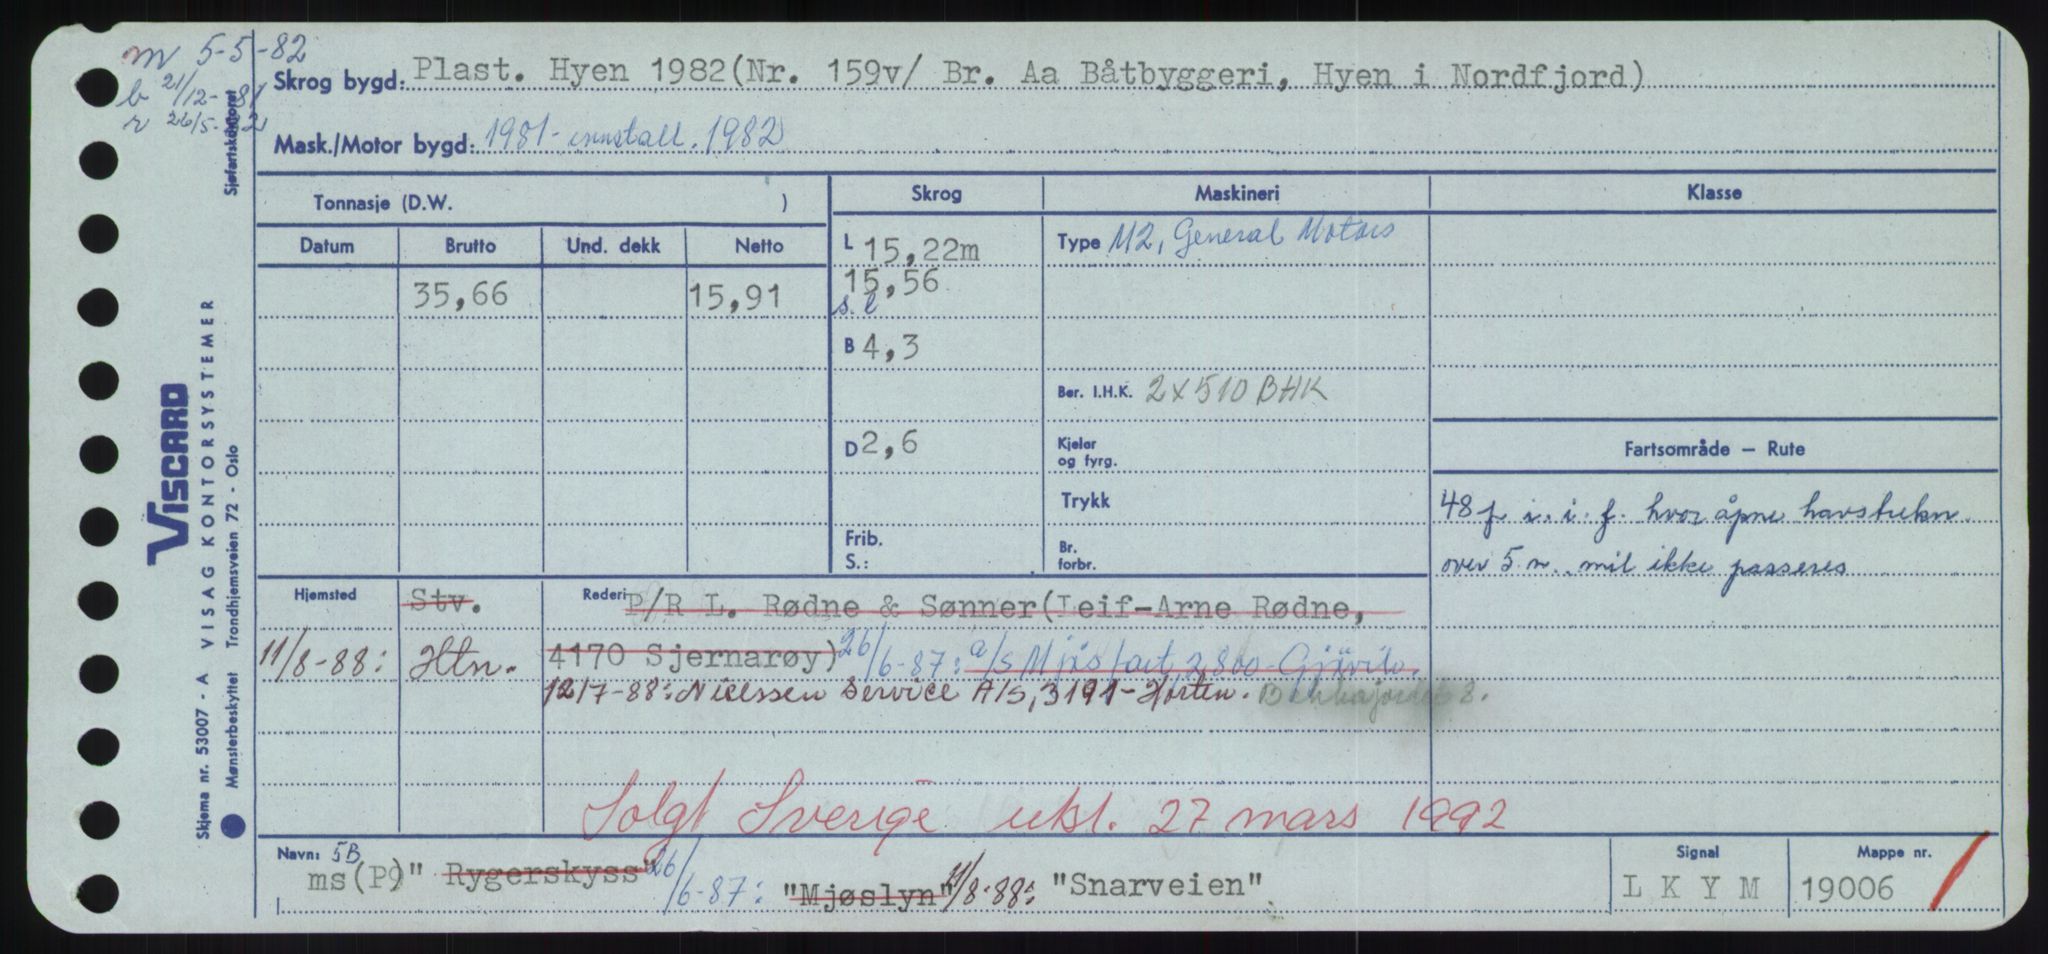 m 5-5-82
b 21/12-81
r 26/5-82
Sjøfartskontoret
Skrog bygd: Plast. Hyen 1982(Nr. 159v/ Br. Aa Båtbyggeri, Hyen i Nordfjord)
Mask./Motor bygd: 1981- innstall. 1982
Tonnasje (D.W. )
Skrog
Maskineri
Klasse
Datum Brutto Und. dekk Netto
35,66 15,91
L 15,22m
15,56
s.l
B 4,3
D 2,6
Frib.
S.:
Type M2, General Motors
Ber. I.H.K. 2x510 BHK
Kjelar
og fyrg.
Trykk
Br.
forbr.
Fartsområde – Rute
48 p i. i. f. hvor åpne havstrekn.
over 5 n. mil ikke passeres
Hjemsted Stv. Rederi P/R L. Rødne & Sønner(Leif-Arne Rødne,
11/8-88: Htn. 4170 Sjernarøy) 26/6-87: a/s Mjøsfart, 2800-Gjøvik.
12/7-88: Nielssen Service A/S, 3191-Horten. 8.
Solgt Sverige utsl. 27 mars 1992
Navn: 5B
ms(P9)" Rygerskyss" 26/6-87: "Mjøslyn" 11/8-88: "Snarveien"
Signal
L K Y M
Mappe nr.
19006
VISCARD
VISAG KONTORSYSTEMER
Skjema nr. 53007 - A
Mønsterbeskyttet Trondhjemsveien 72 - Oslo